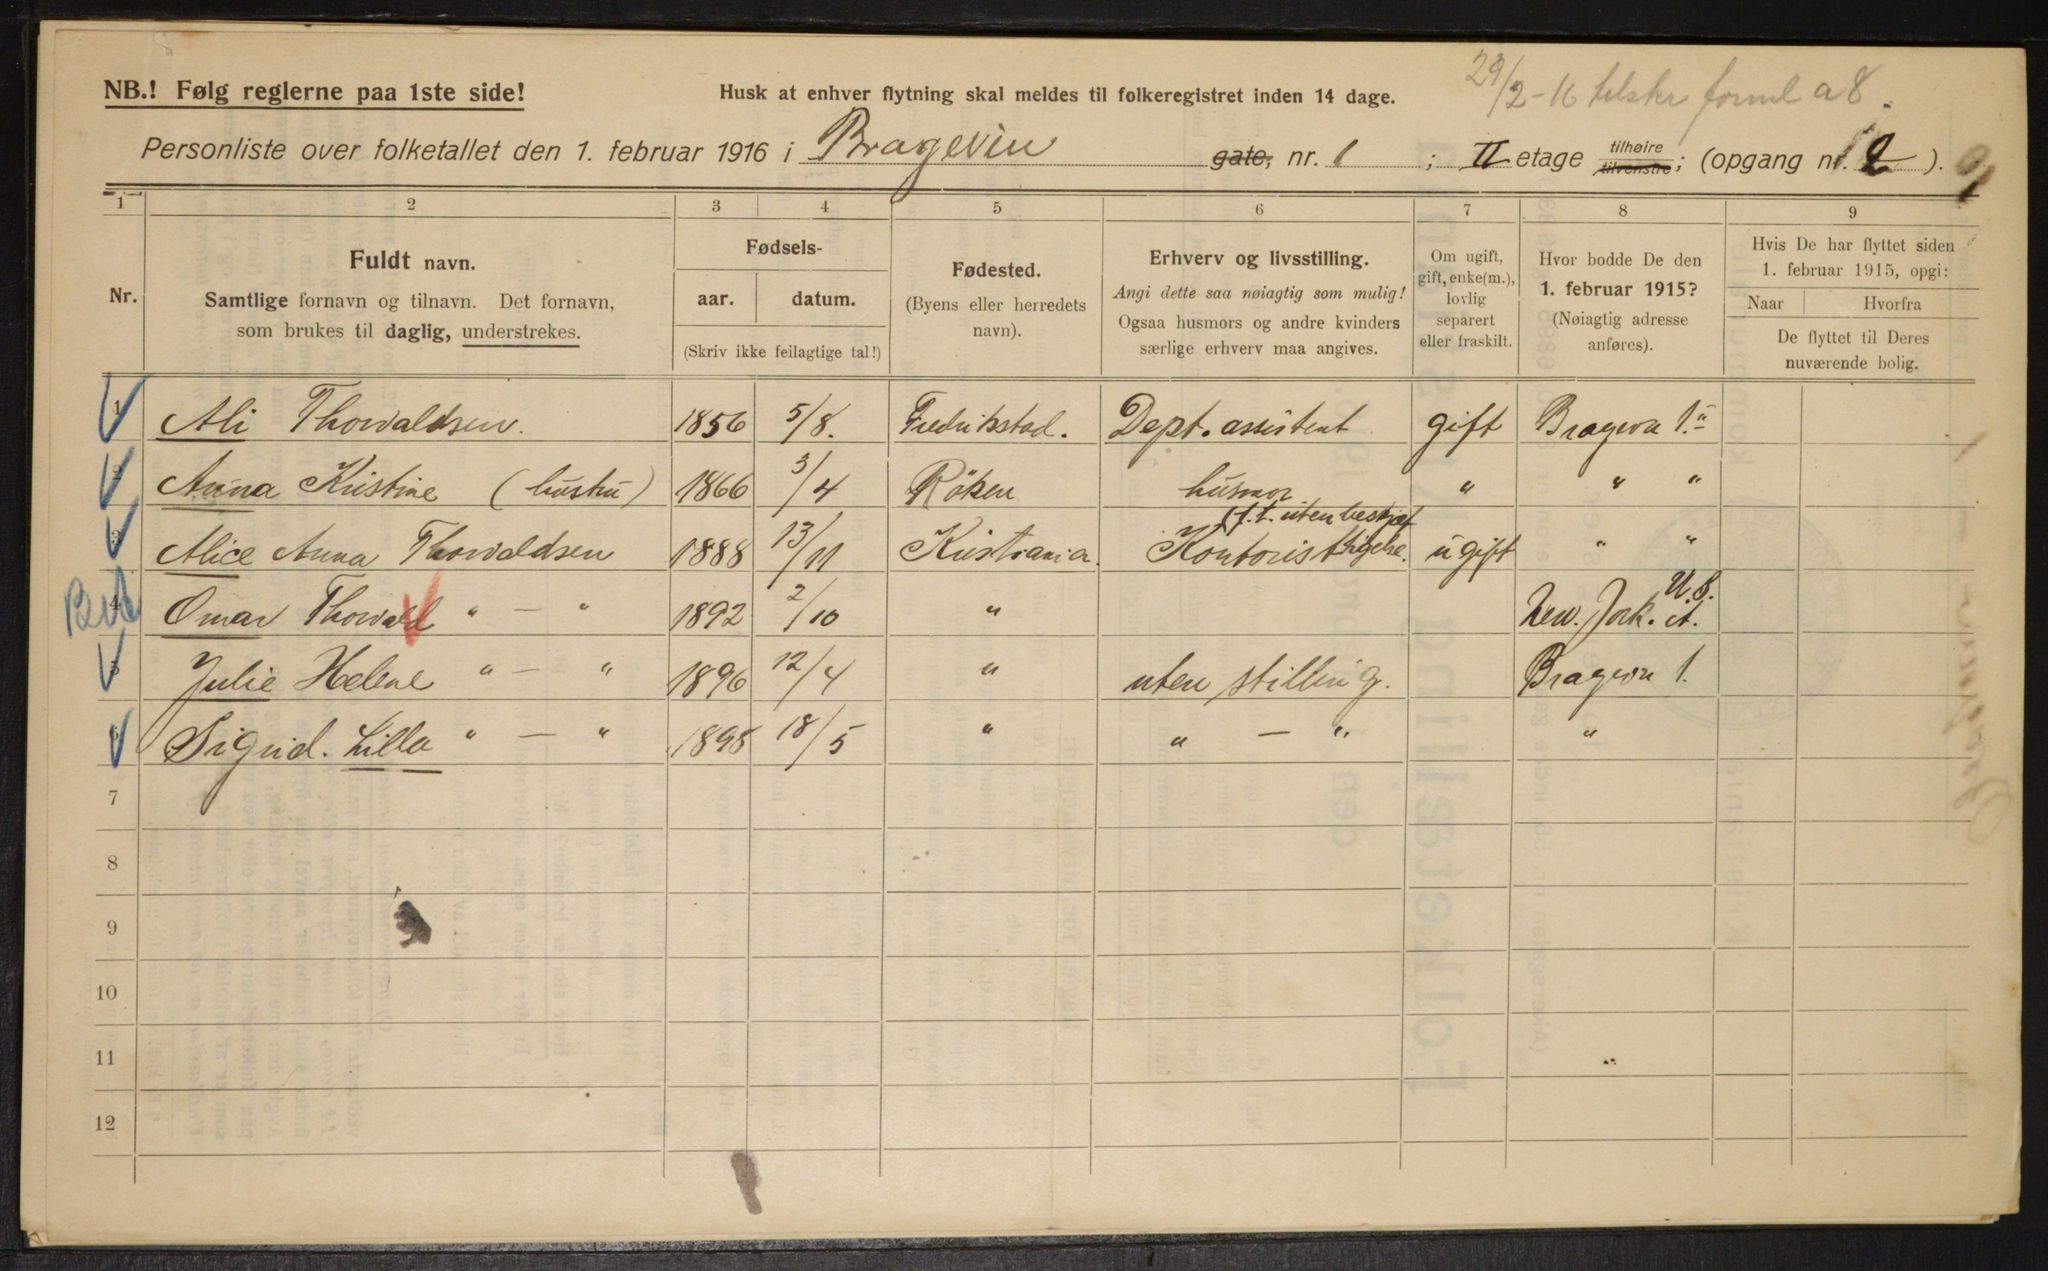 29/2-16 tilskr forml a 8.
NB.! Følg reglerne paa 1ste side!
Husk at enhver flytning skal meldes til folkeregistret inden 14 dage.
Personliste over folketallet den 1. februar 1916 i Bragevin gate, nr. 1; II etage tilhøire tilvenstre; (opgang nr. 2).
1 2 3 4 5 6 7 8 9
Nr.
Fuldt navn.
Samtlige fornavn og tilnavn. Det fornavn,
som brukes til daglig, understrekes.
Fødsels-
aar. datum.
(Skriv ikke feilagtige tal!)
Fødested.
(Byens eller herredets
navn).
Erhverv og livsstilling.
Angi dette saa nøiagtig som mulig!
Ogsaa husmors og andre kvinders
særlige erhverv maa angives.
Om ugift,
gift, enke(m.),
lovlig
separert
eller fraskilt.
Hvor bodde De den
1. februar 1915?
(Nøiagtig adresse
anføres).
Hvis De har flyttet siden
1. februar 1915, opgi:
Naar Hvorfra
De flyttet til Deres
nuværende bolig.
1 Ali Thowaldsen. 1856 5/8. Fredrikstad. Dept. assistent gift Bragevn 1.
2 Anna Kristine (hustru) 1866 3/4 Röken husmor " " "
3 Alice Anna Thowaldsen 1888 13/11 Kristiania Kontorist (f. t. uten beskjæftigelse. ugift " "
4 Omar Thowald " — " 1892 2/10 " New. York. U.S.A.
5 Julie Helene " — " 1896 12/4 " uten stilling. Bragevn 1.
6 Sigrid. Lilla " — " 1898 18/5 " " — " "
7
8
9
10
11
12